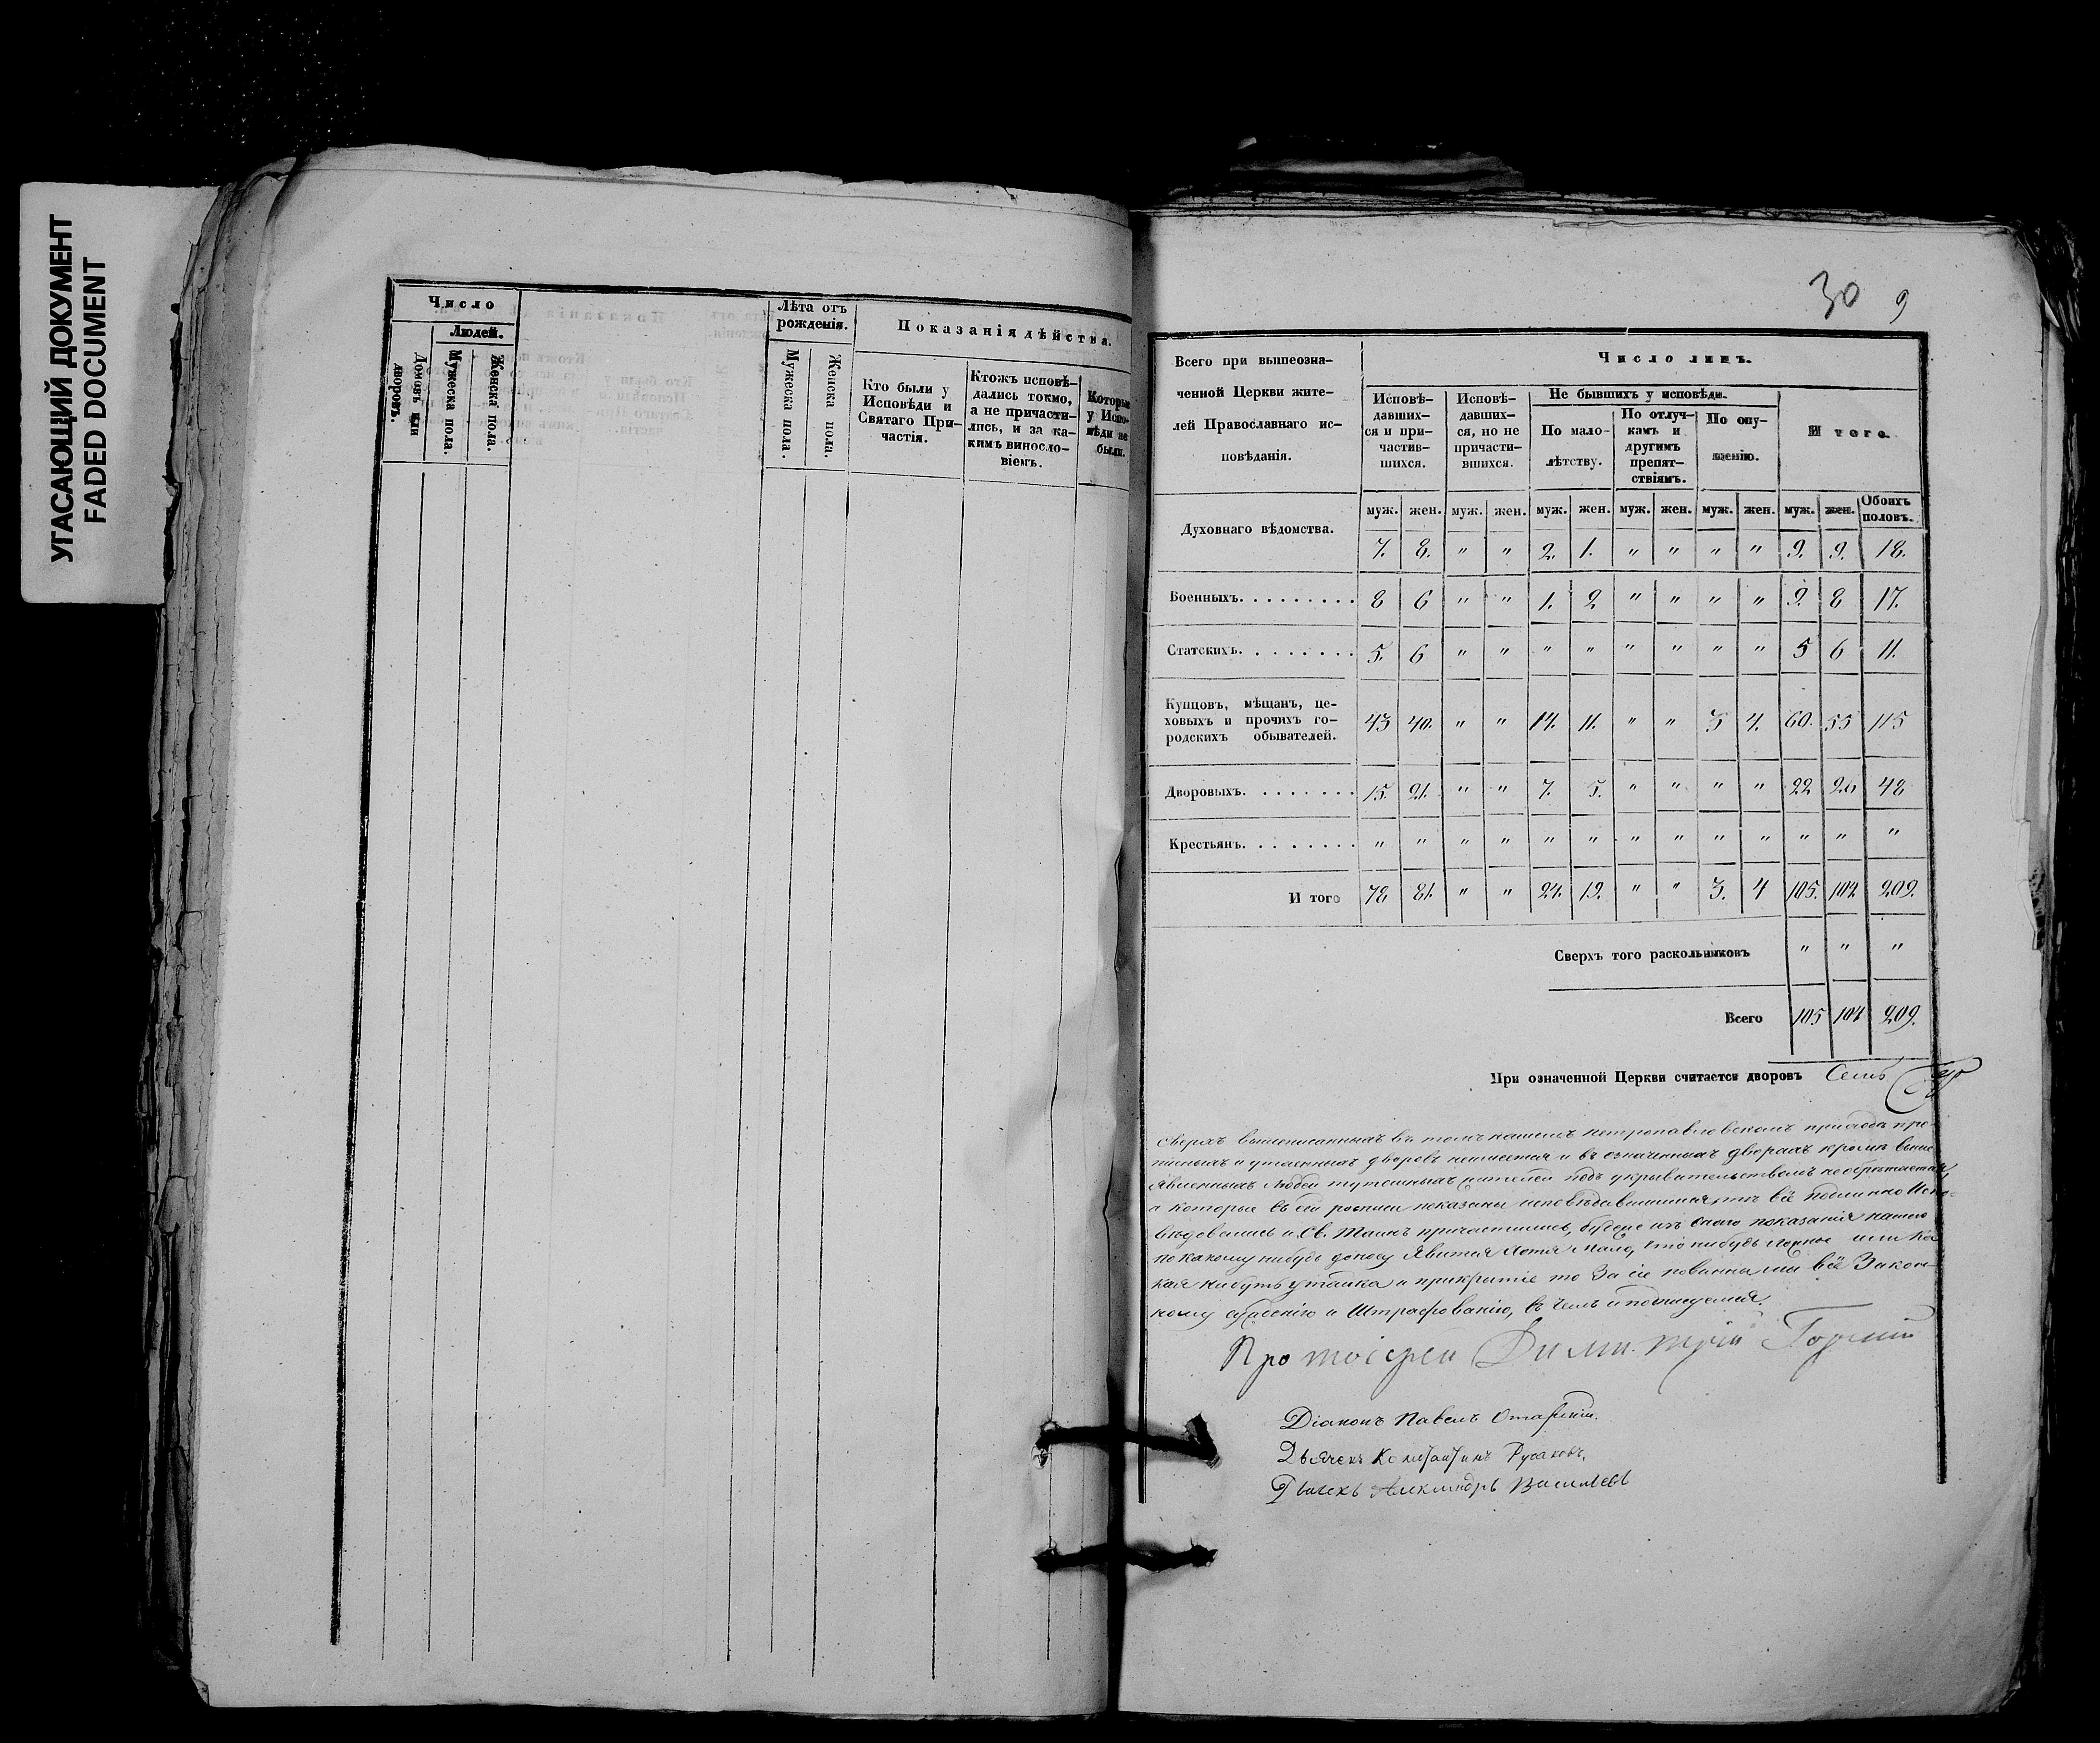 УГАСАЮЩИЙ ДОКУМЕНТ
FADED DOCUMENT
Число
Людей.
Домовъ или дворовъ.
Мужеска пола.
Женска пола.
Лѣта отъ рожденія.
Мужеска пола.
Женска пола.
Показанія дѣйства.
Кто были у
Исповѣди и
Святаго При-
частія.
Ктожъ исповѣ-
дались токмо,
а не причасти-
лись, и за ка-
кимъ винносло-
віемъ.
Которые
у Испо-
вѣди не
были.
30 9
Всего при вышеозна-
ченной Церкви жите-
лей Православнаго ис-
повѣданія.
Число лицъ.
Исповѣ-
давших-
ся и при-
частив-
шихся.
Исповѣ-
давших-
ся, но не
причасти-
вшихся.
Не бывшихъ у исповѣди.
По мало-
лѣтству.
По отлуч-
камъ и
другимъ
препят-
ствіямъ.
По опу-
щенію.
И того.
муж. жен. муж. жен. муж. жен. муж. жен. муж. жен. муж. жен. Обоихъ половъ.
Духовнаго вѣдомства. 7. 8. " " 2. 1. " " " " 9. 9. 18.
Военныхъ. . . . . . . . . 8 6 " " 1. 2 " " " " 9. 8 17.
Статскихъ. . . . . . . . 5. 6 " " " " " " " " 5 6 11.
Купцовъ, мѣщанъ, це-
ховыхъ и прочихъ го-
родскихъ обывателей. 43 40. " " 14. 11. " " 3 4. 60. 55 115
Дворовыхъ. . . . . . . . 15. 21. " " 7. 5. " " " " 22 26 48
Крестьянъ. . . . . . . . " " " " " " " " " " " " "
И того 78 81. " " 24. 19. " " 3. 4 105. 104. 209.
Сверхъ того раскольниковъ " " "
Всего 105 104 209.
При означенной Церкви считается дворовъ Семь
Сверхъ вышеписанныхъ въ томъ нашемъ петропавловскомъ приходѣ про-
писныхъ и утаенныхъ дворовъ неимеется и въ означенныхъ дворахъ кромѣ выше
явленныхъ людей тутошныхъ жителей подъ укрывательствомъ не обрѣтается,
а которые въ сей росписи показаны исповѣдавшимися, тѣ всѣ подлинно Испо-
вѣдовались и Св. Таинъ причастились, будеже изъ онаго показанія нашего
по какому нибудь доносу явится хотя мало, что нибудь ложное или ка
кая нибуть утайка и прикрытіе то за сіе повинны мы всѣ Закон-
ному сужденію и Штрафованію, въ чемъ и подписуемся.
Протоіерей Димитрій Горскій
Діаконъ Павелъ
Дьячекъ Константинъ Русаковъ.
Дьячекъ Александръ Васильевъ